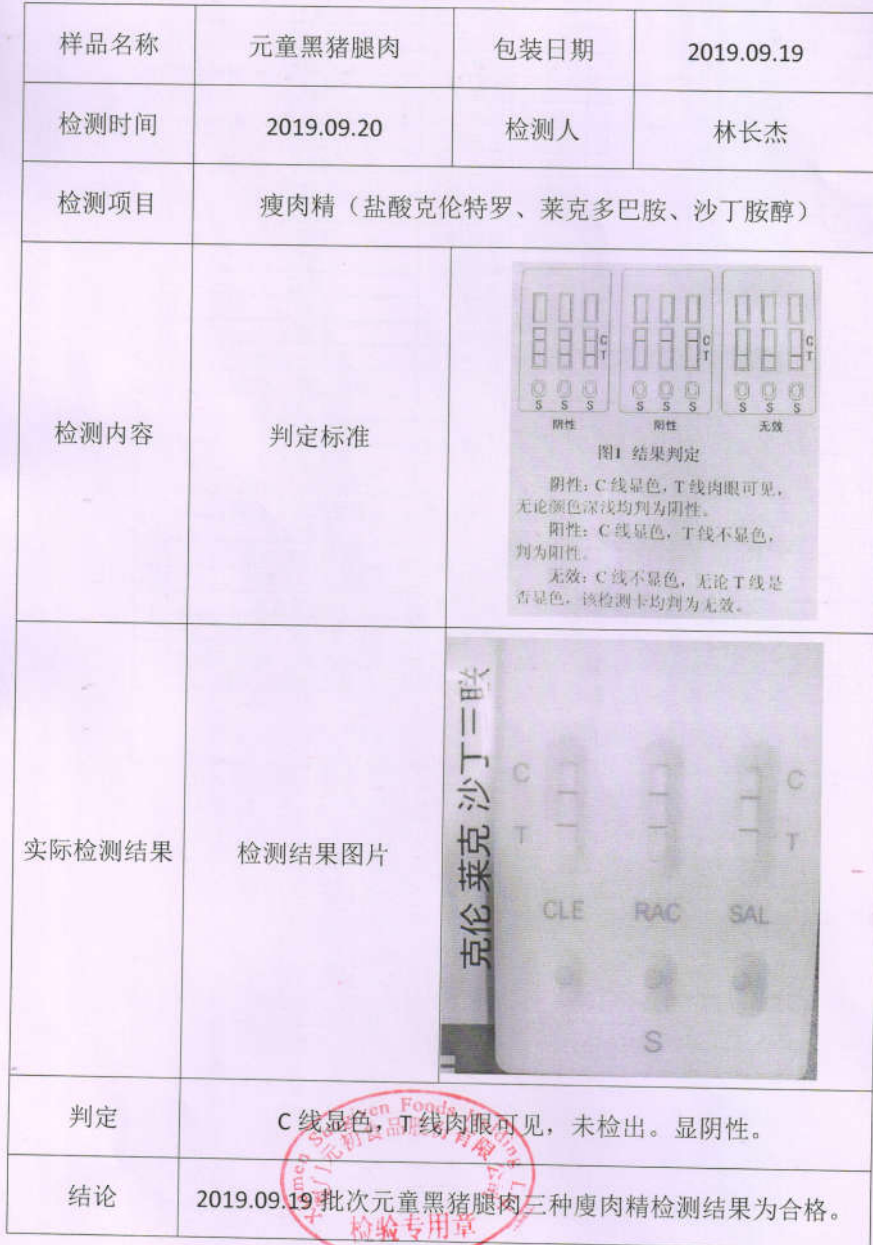 样品名称 元童黑猪腿肉 包装日期 2019.09.19
检测时间 2019.09.20 检测人 林长杰
检测项目 瘦肉精（盐酸克伦特罗、莱克多巴胺、沙丁胺醇）
检测内容 判定标准
C C C
T T T
S S S S S S S S S
阴性 阳性 无效
图1 结果判定
阴性：C 线显色，T 线肉眼可见，
无论颜色深浅均判为阴性。
阳性：C 线显色，T 线不显色，
判为阳性。
无效：C 线不显色，无论 T 线是
否显色，该检测卡均判为无效。
实际检测结果 检测结果图片
克伦 莱克 沙丁三联
C C
T T
CLE RAC SAL
S
判定 C 线显色，T 线肉眼可见，未检出。显阴性。
结论 2019.09.19 批次元童黑猪腿肉三种廋肉精检测结果为合格。
厦门元初食品股份有限公司
检验专用章